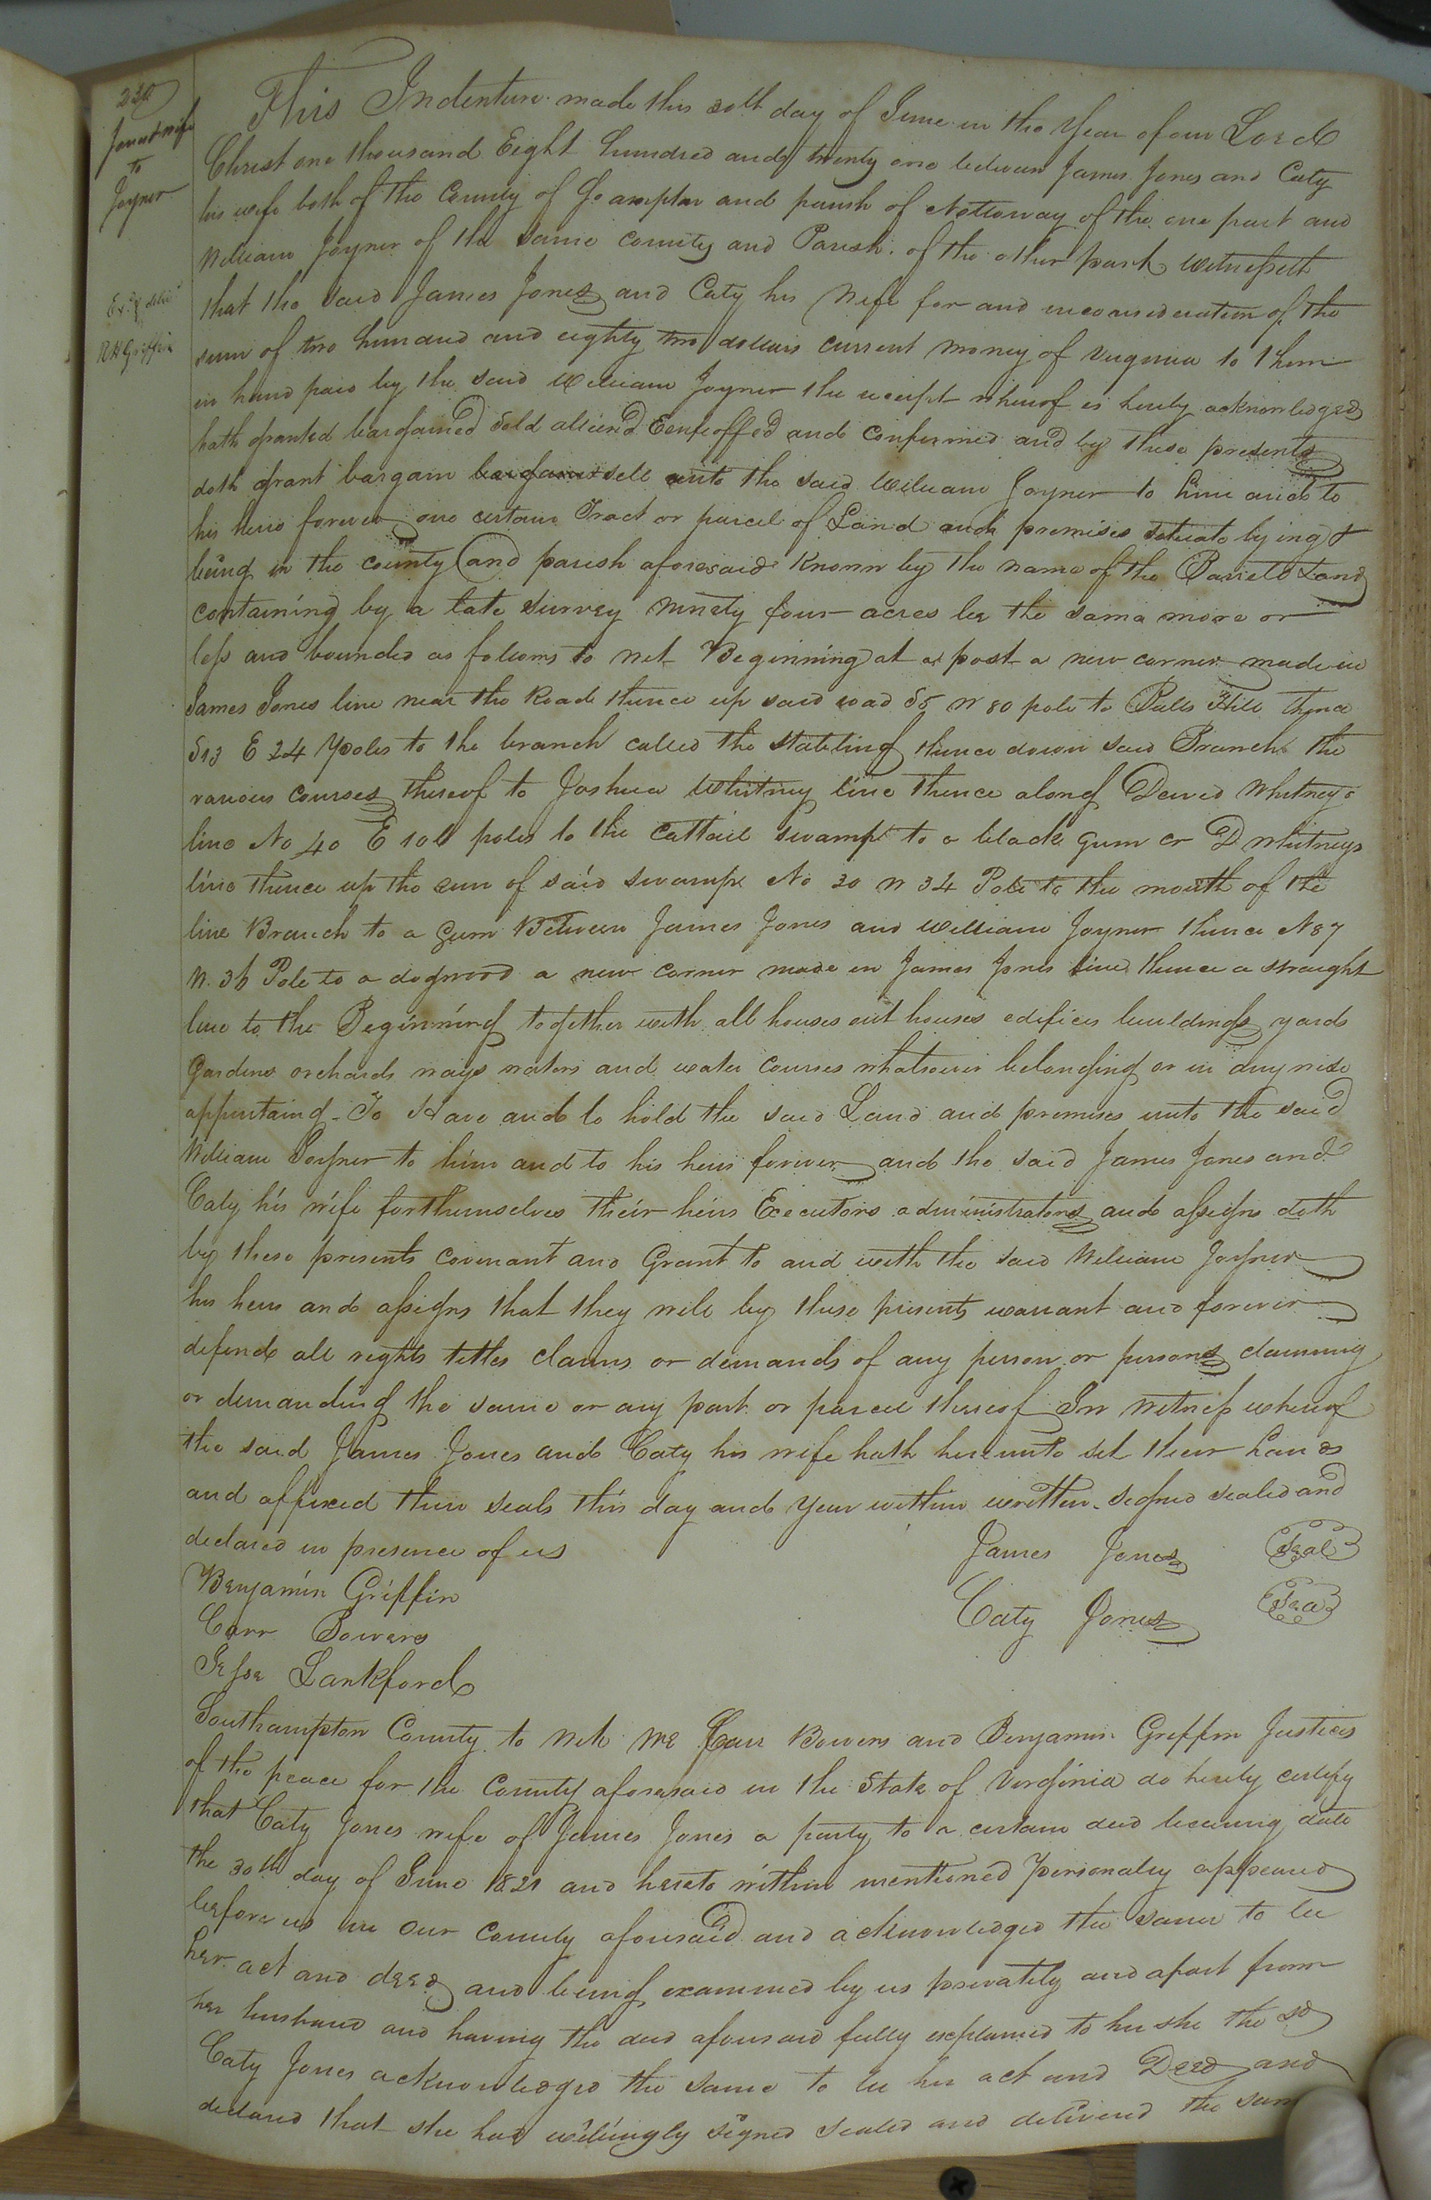 230
Jones & wife
to
Joyner
Exd & deld
R H Griffin
This Indenture made this 30th day of June in the Year of our Lord
Christ one thousand Eight hundred and twenty one between James Jones and Caty
his wife both of the County of So ampton and parish of Nottoway of the one part and
William Joyner of the same County and Parish of the other part Witnesseth
that the said James Jones and Caty his Wife for and inconsideration of the
sum of two hundred and eighty two dollars current money of Virginia to them
in hand paid by the said William Joyner the receipt whereof is hereby acknowledged
hath granted bargained sold aliend Eenfeoffed and confirmed and by these presents
doth grant bargain sell unto the said William Joyner to him and to
his heirs forever one certain Tract or parcel of Land and premises situate lying &
being in the county and parish aforesaid Known by the name of the Land
containing by a late survey ninety four acres be the same more or
less and bounded as follows to wit Beginning at a post a new corner made in
James Jones line near the Road thence up said road S5 W 80 pole to Hill thence
S13 E 24 poles to the branch called the thence down said Branch the
various courses thereof to Joshua Whitney line thence along David Whitneys
line No 40 E 106 poles to the Cattail swamp to a black gum cr D Whitneys
line thence up the run of said swamp No 30 W 34 Pole to the mouth of the
line Branch to a Gum Between James Jones and William Joyner thence N87
W. 36 Pole to a dogwood a new corner made in James Jones line thence a straight
line to the Beginning together with all houses out houses edifices buildings yards
Gardens orchards ways waters and water courses whatsoever belonging or in any wise
appertaing - To Have and to hold the said Land and premises unto the said
William Joyner to him and to his heirs forever and the said James Jones and
Caty his wife forthemselves their heirs Executors administrators and assigns doth
by these presents covenant and Grant to and with the said William Joyner
his heirs and assigns that they will by these presents warrant and forever
defend all rights titles claims or demands of any person or persons claiming
or demanding the same or any part or parcel thereof In witness whereof
the said James Jones and Caty his wife hath hereunto set their hands
and affixed their seals this day and year within written. signed sealed and
declared in presence of us
James Jones Seal
Benjamin Griffin
Caty Jones Seal
Carr Bowers
Jesse Lankford
Southampton County to wit We Carr Bowers and Benjamin Griffin Justices
of the peace for the County aforesaid in the State of Virginia do hereby certify
that Caty Jones wife of James Jones a party to a certain deed bearing date
the 30th day of June 1821 and hereto within mentioned personally appeared
before us in our County aforesaid and acknowledged the same to be
her act and deed and being examined by us privately and apart from
her husband and having the deed aforesaid fully explained to her she the sd
Caty Jones acknowledged the same to be her act and Deed and
declared that she had willingly signed sealed and delivered the same